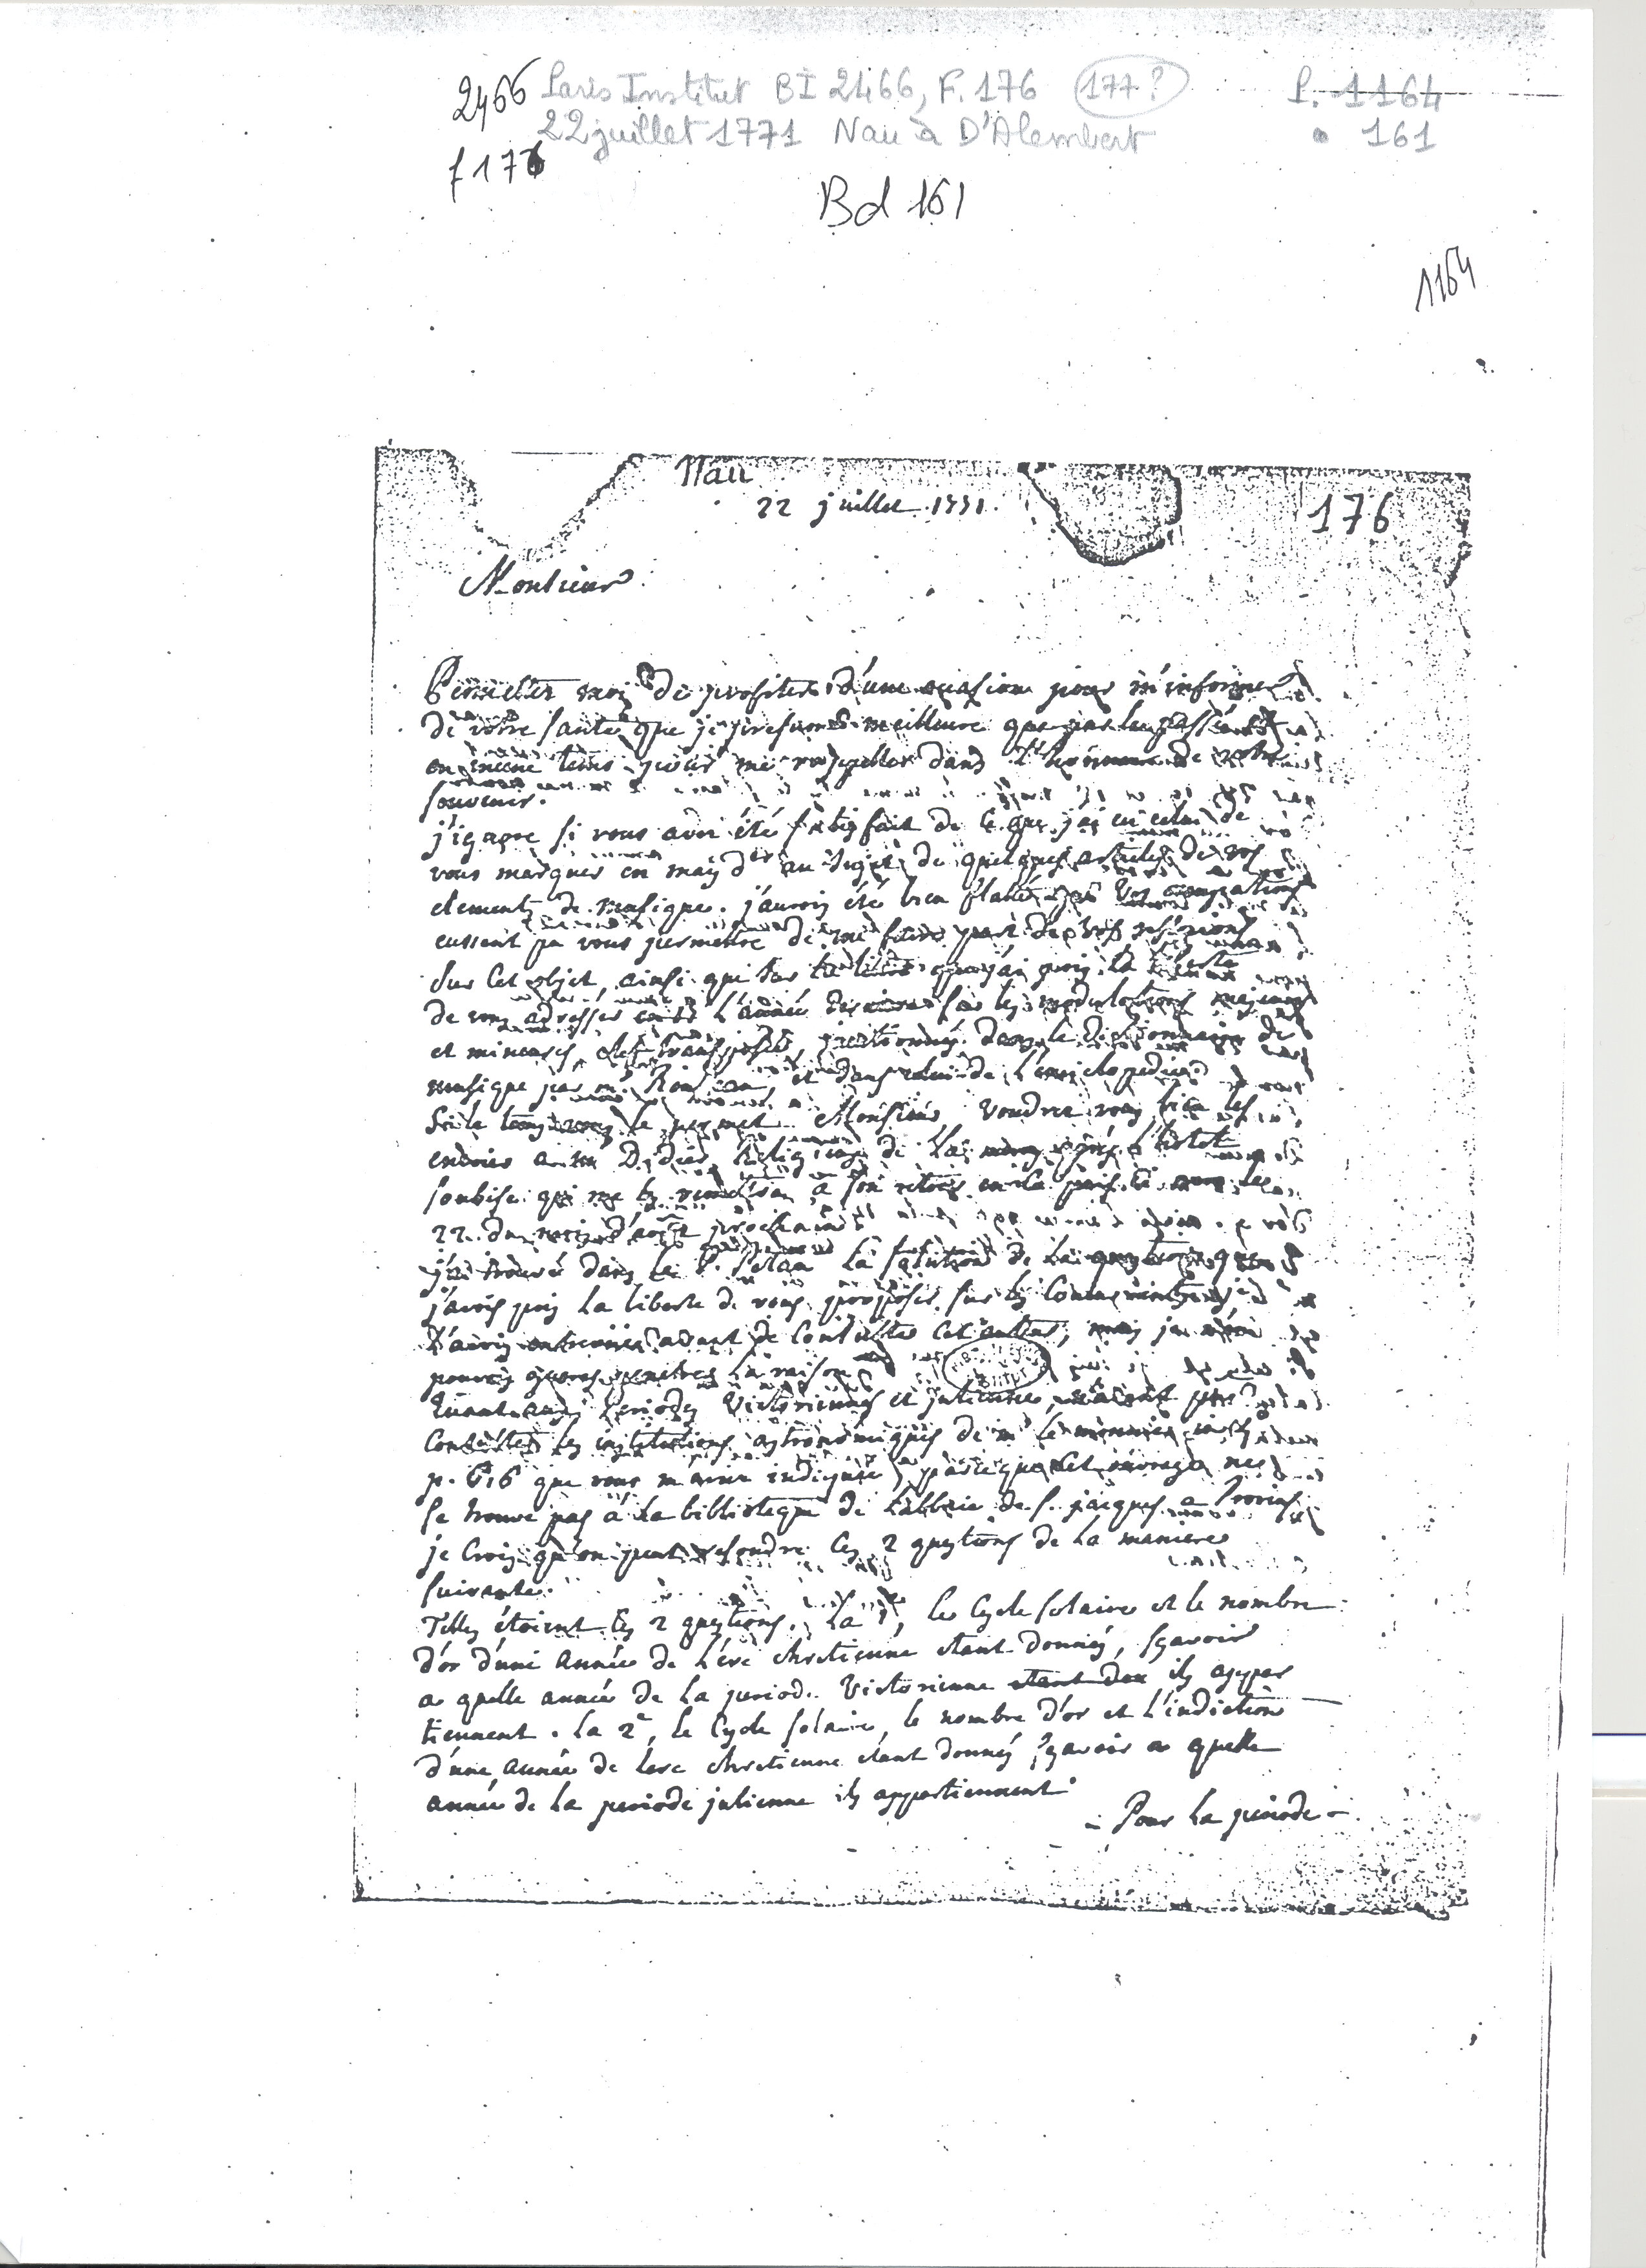 2466 Paris Institut BI 2466, F. 176 177? P. 1164
22 juillet 1771 Nau à D'Alembert 161
f 176
Bd 161
1164
Nau
22 juillet 1771.
176
Monsieur
Permettez moi de profiter d'une occasion pour m'informer
de votre santé que je presume meilleure que par le passé et
en meme tems pour me rappeller dans l'honneur de votre
souvenir.
j'ignore si vous avez été satisfait de ce que j'ai eu celui de
vous marquer en may dr au sujet de quelques articles de vos
elements de musique. j'aurois été bien flaté que vos occupations
eussent pu vous permettre de me faire part de vos reflexions
sur cet objet, ainsi que sur que j'ai pris la liberté
de vous adresser l'année derniere sur les modulations majeures
et mineures, dans le dictionnaire de
musique par mr Rousseau, et dans celui de l'enciclopedie
Si le tems vous le permet Monsieur, voudrez vous bien les
envoier a mr Didier Religieux de la l'hotel
soubise qui me les remettra à son retour en ce païs ci
22 du mois d'août prochain
j'ai trouvé dans le P. Petau la solution de la question que
j'avois pris la liberté de vous proposer sur les
avant de consulter cet auteur, mais je n'en
pouvois gueres penetrer la raison
Quant aux periodes Victorienne et julienne, n'aiant pu
Consulter les institutions astronomiques de mr le monnier
p. 616 que vous m'aviez indiquée, parceque cet ouvrage ne
se trouve pas à la biblioteque de l'abbaie de s. jacques a Provins
je crois qu'on peut resoudre les 2 questions de la maniere
suivante.
Telles étoient les 2 questions. La 1e, le Cycle solaire et le nombre
d'or d'une année de l'ere chretienne etant donnés, sçavoir
a quelle année de la periode Victorienne etant don ils appar
tiennent. la 2e, le Cycle solaire, le nombre d'or et l'indiction
d'une année de l'ere chretienne étant donnés sçavoir a quelle
année de la periode julienne ils appartiennent
- Pour la periode -